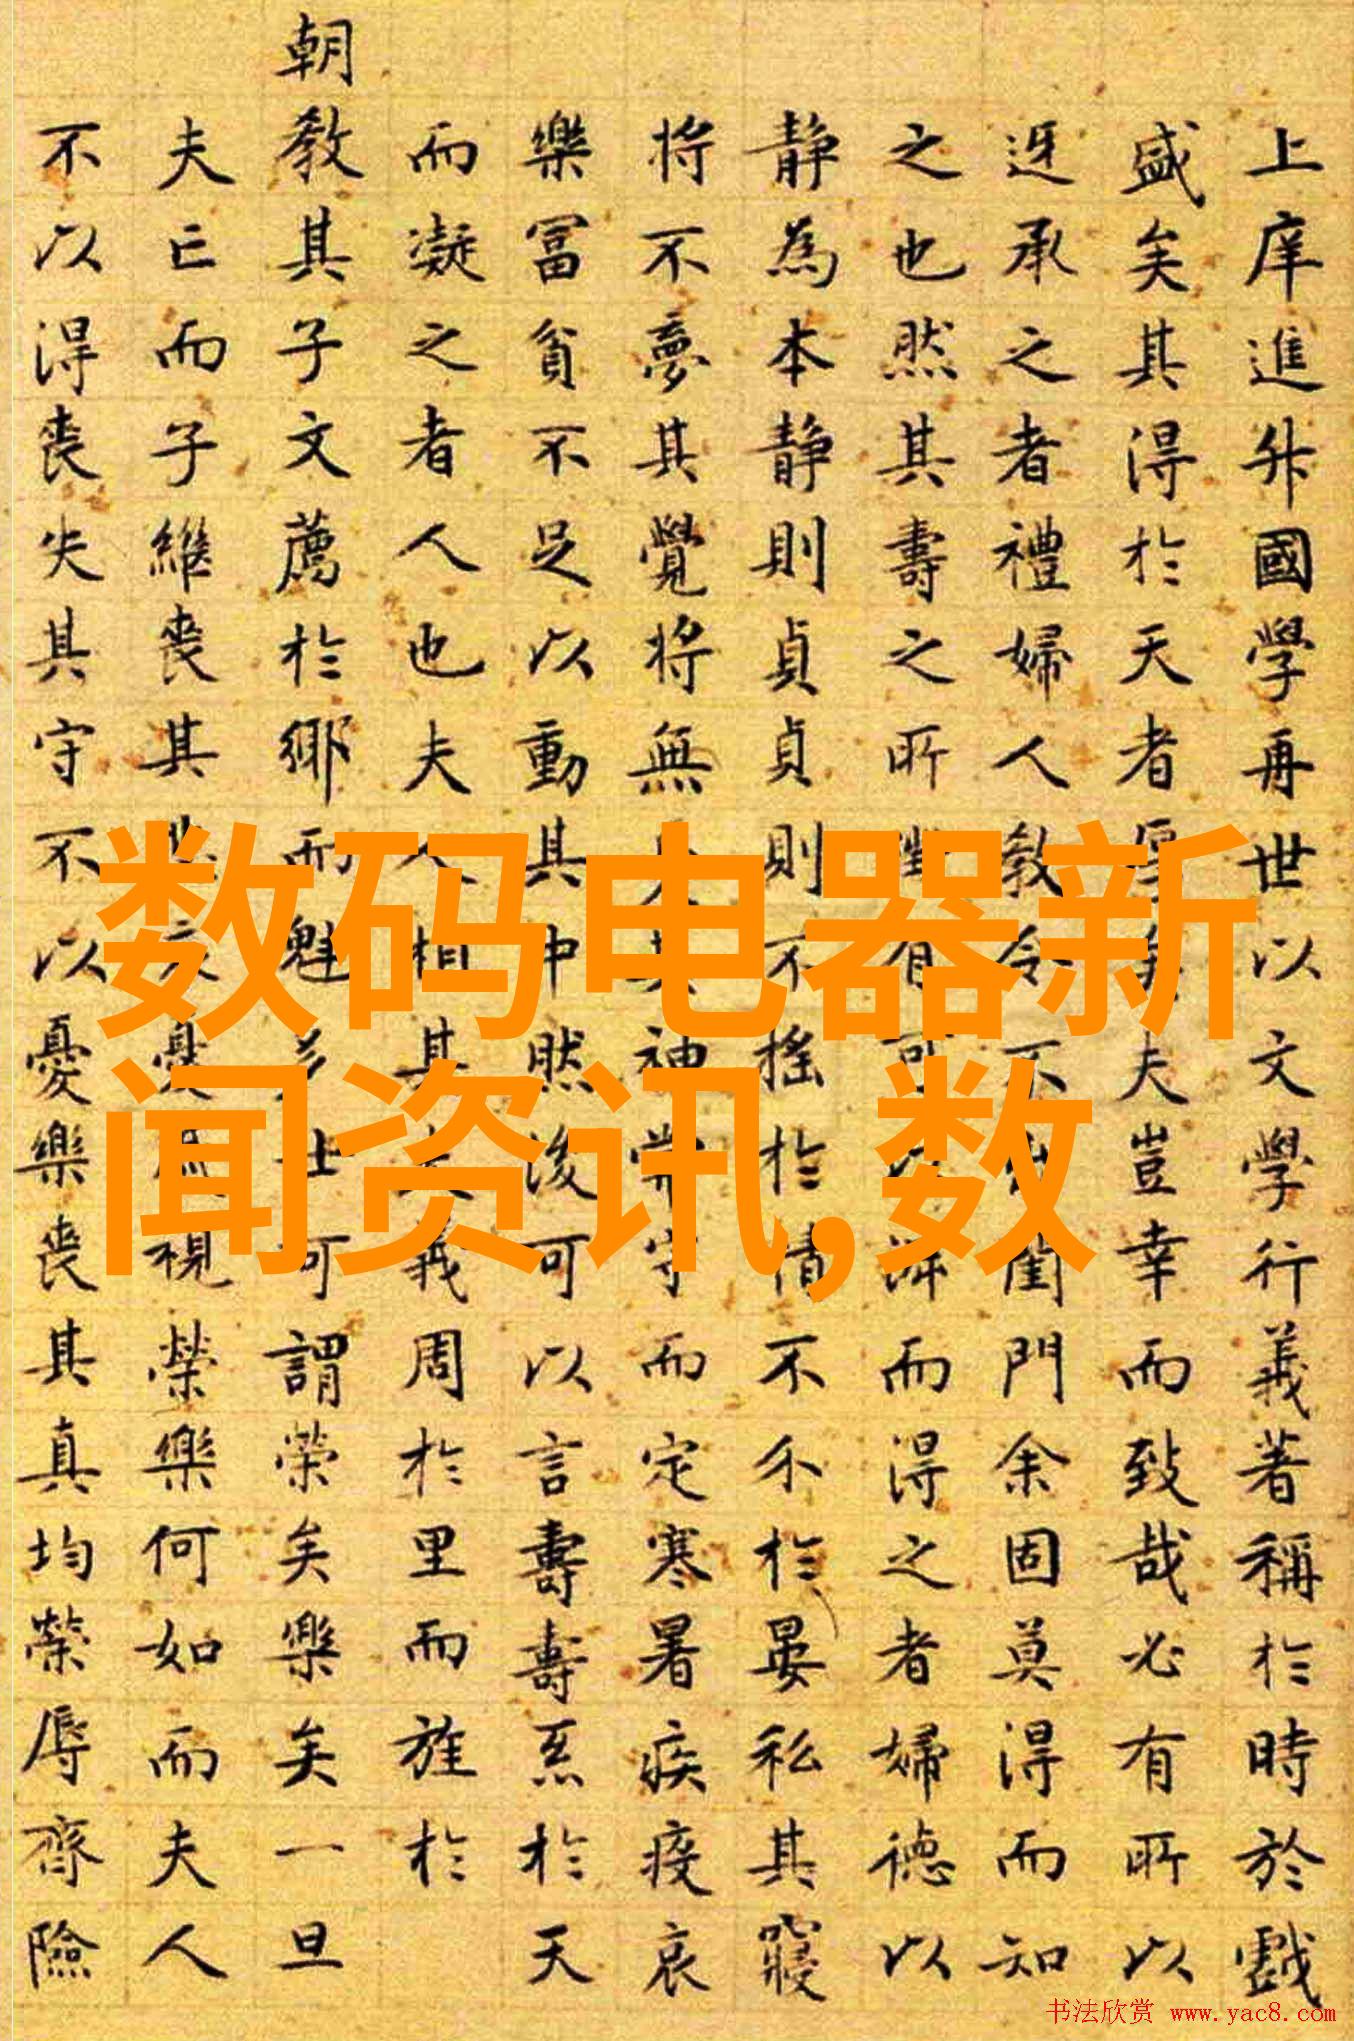 上庠進升國學再世以文學行義著稱於時於戲
盛矣其得於天者厚矣夫豈幸而致哉必有所以
迓承之者禮婦人教令不出閨門余固莫得而知
之也然其壽之所有可得而得之者婦德以
靜為本靜則貞貞則不搖於情不介於晏私其寢
將不夢其覺將無其神常守而定寒暑疾疫哀
樂冨貧不足以動其中然後可以言壽壽系於天
而凝之者人也夫人相其夫義周於里而旌於
朝教其子文薦於鄉而魁多士可謂榮矣樂矣一旦
夫亡而子繼喪其視榮樂何如而夫人
不以得喪失其守不以憂樂喪其真均榮辱齊險
数码电器新
闻资讯,数
书法欣赏 www.yac8.com